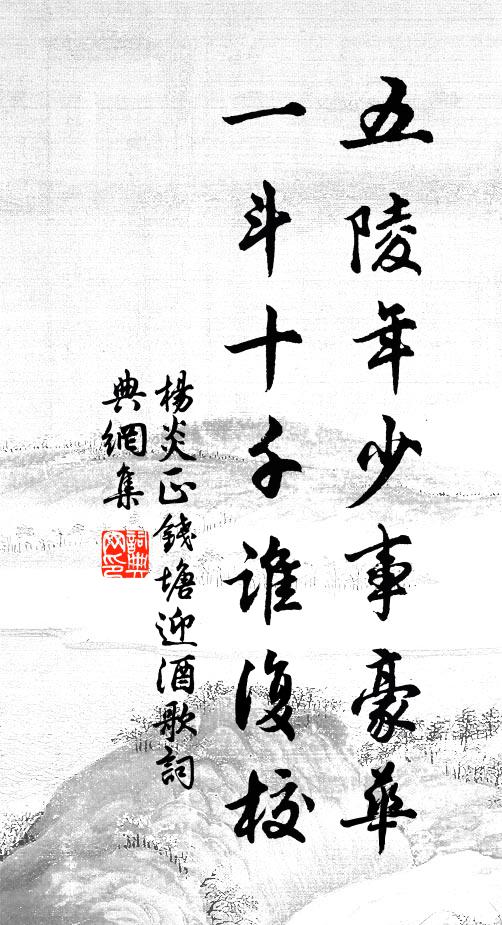 五陵年少事豪華
一斗十千誰復校
楊炎正錢塘迎酒歌詞
典網集
詞典網印